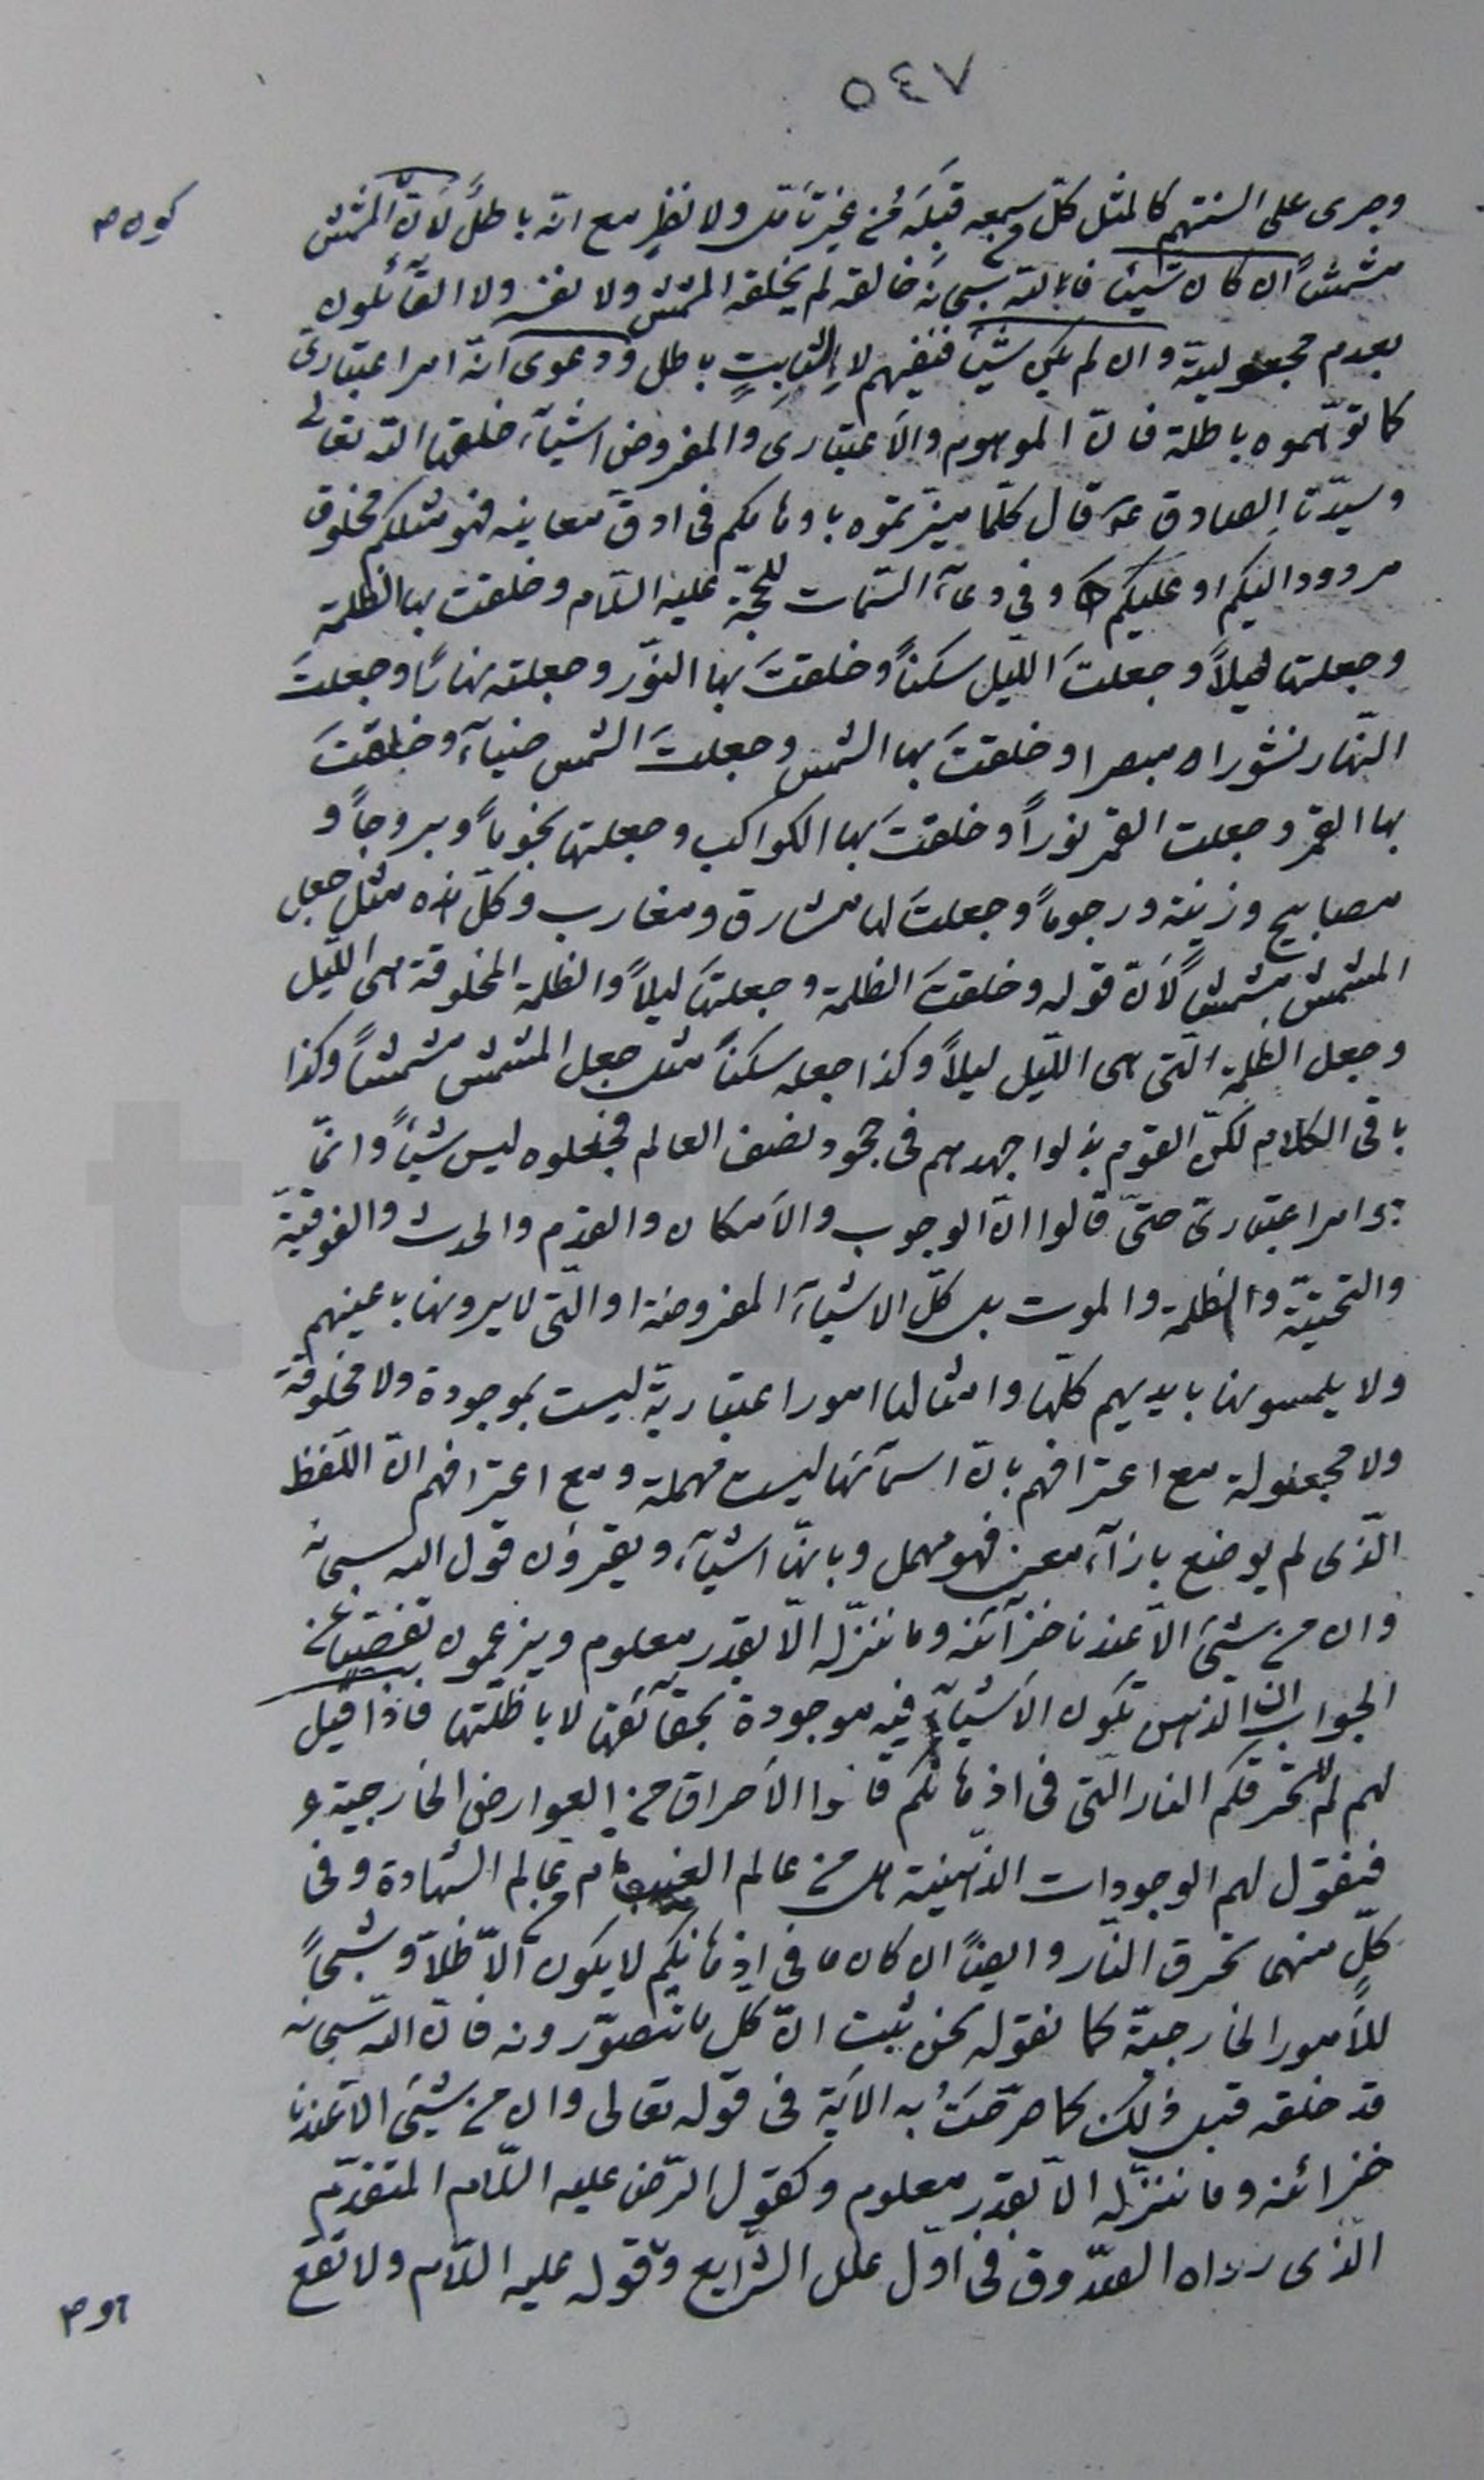 ٥٤٧
وجرى على السنتهم كالمثل كلّ من سمعه قبله من غير تأمّل ولا نظر مع انّه باطل لأنّ المشمش
مشمشاً ان كان شيئا فالله سبحانه خالقه لم يخلقه المشمش ولا نفسه ولا القآئلون
بعدم مجعوليّة وان لم يكن شيئاً فنفيهم لا لثابتٍ باطل ودعوى انّه امر اعتبارىّ
كما توهّموه باطلة فانّ الموهوم والاعتبارى والمفروض اشيآء خلقها الله تعالى
وسيّدنا الصادق ع قال كلّما ميّزتموه باوهامكم فى ادقّ معانيه فهو مثلكم مخلوق
مردود اليكم او عليكم وفي دعآء السّمات للحجّة عليه السّلام وخلقت بها الظلمة
وجعلتها ليلاً وجعلتَ اللّيل سكناً وخلقتَ بها النّور وجعلته نهاراً وجعلتَ
النّهار نشورا مبصرا وخلقتَ بها الشمس وجعلتَ الشمس ضيآء وخلقتَ
بها القمر وجعلت القمر نوراً وخلقتَ بها الكواكب وجعلتها نجوماً وبروجاً و
مصابيح وزينة ورجوماً وجعلتَ لها مشارق ومغارب وكلّ هذه مثل جعل
المشمش مشمشاً لأنّ قوله وخلقتَ الظلمة وجعلتها ليلاً والظلمة المخلوقة هى اللّيل
وجعل الظلمة الّتى هى اللّيل ليلاً وكذا جعله سكناً مثل جعل المشمش مشمشاً وكذا
باقى الكلام لكنّ القوم بذلوا جهدهم فى جحود نصف العالم فجعلوه ليس شيئاً وانّما
هو امر اعتبارىّ حتّى قالوا انّ الوجوب والامكان والقدم والحدث والفوقيّة
والتحتيّة والظلمة والموت بل كلّ الاشيآء المفروضة او الّتى لا يرونها باعينهم
ولا يلمسونها بايديهم كلّها وامثالها امور اعتباريّة ليست بموجودة ولا مخلوقة
ولا مجعولة مع اعترافهم بانّ اسمآئها ليست مهملة ومع اعترافهم انّ اللّفظ
الّذى لم يوضع بازآء معنى فهو مهمل وبانّها اشيآء ويقرؤن قول الله سبحانه
وان من شيئ الّا عندنا خزآئنه وما ننزّله الّا بقدر معلوم ويزعمون تفصّيا عن
الجواب انّ الذهن تكون الاشيآء فيه موجودة بحقآئقها لا باظلّتها فاذا قيل
لهم لِم لا تحرقكم النار الّتى فى اذهانكم قالوا الاحراق من العوارض الخارجية
فنقول لهم الوجودات الذّهنيّة هل من عالم الغيب ام من عالم الشهادة وفى
كلّ منهما تحرق النّار وايضاً ان كان ما فى اذهانكم لا يكون الّا ظلّا وشبحاً
للأمور الخارجيّة كما نقوله نحن ثبت انّ كل ما تتصوّرونه فانّ الله سبحانه
قد خلقه قبل ذلك كما صرّحتْ به الآية فى قوله تعالى وان من شيئ الّا عندنا
خزائنه وما ننزّله الّا بقدر معلوم وكقول الرّضا عليه السّلام المتقدّم
الّذى رواه الصّدوق فى اوّل علل الشّرايع وقوله عليه السّلام ولا تقع